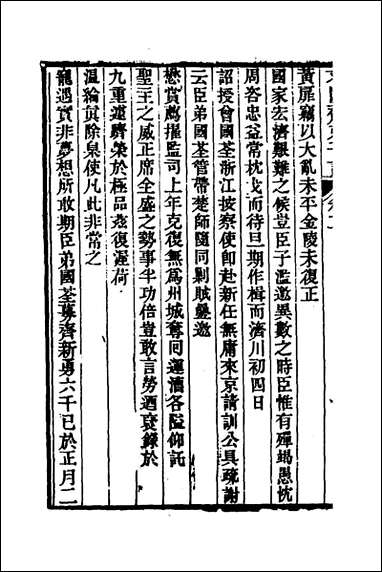 黃扉竊以大亂未平金陵未復正
國家宏濟艱難之候豈臣子濫邀異數之時臣惟有殫竭愚忱
周咨忠益常枕戈而待旦期作楫而濟川初四日
詔授曾國荃浙江按察使卽赴新任無庸來京請訓公具疏謝
云臣弟國荃管帶楚師隨同剿賊壘邀
懋賞薦擢監司上年克復無為州城奪回運漕各隘仰託
聖主之威正席全盛之勢事半功倍豈敢言勞迺褒錄於
九重遽躋榮於極品茲復渥荷
溫綸真除臬使凡此非常之
寵遇實非夢想所敢期臣弟國荃募齊新勇六千已於正月二